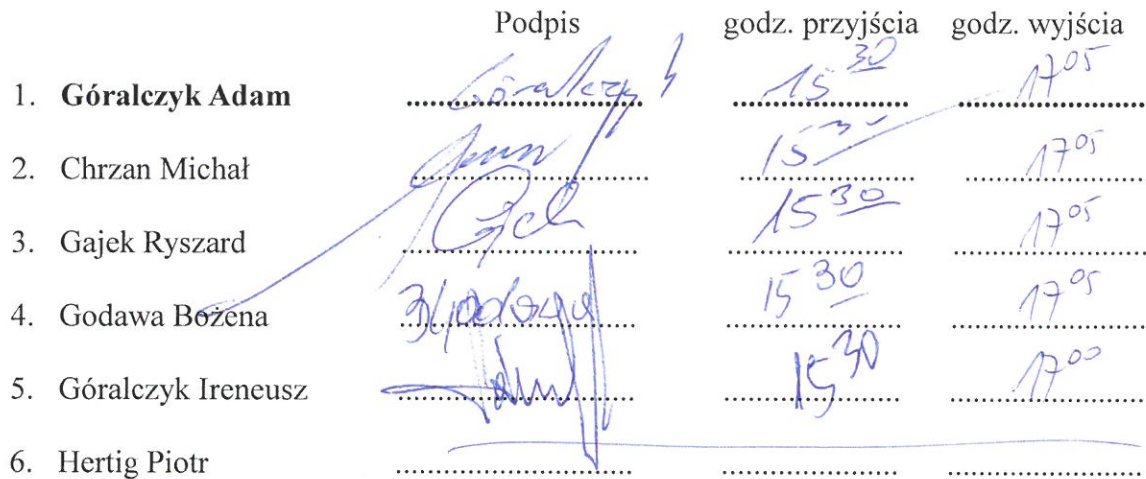 Podpis godz. przyjścia godz. wyjścia
1. Góralczyk Adam Góralczyk 15 30 17 05
2. Chrzan Michał 15 30 17 05
3. Gajek Ryszard 15 30 17 05
4. Godawa Bożena 15 30 17 05
5. Góralczyk Ireneusz 15 30 17 00
6. Hertig Piotr